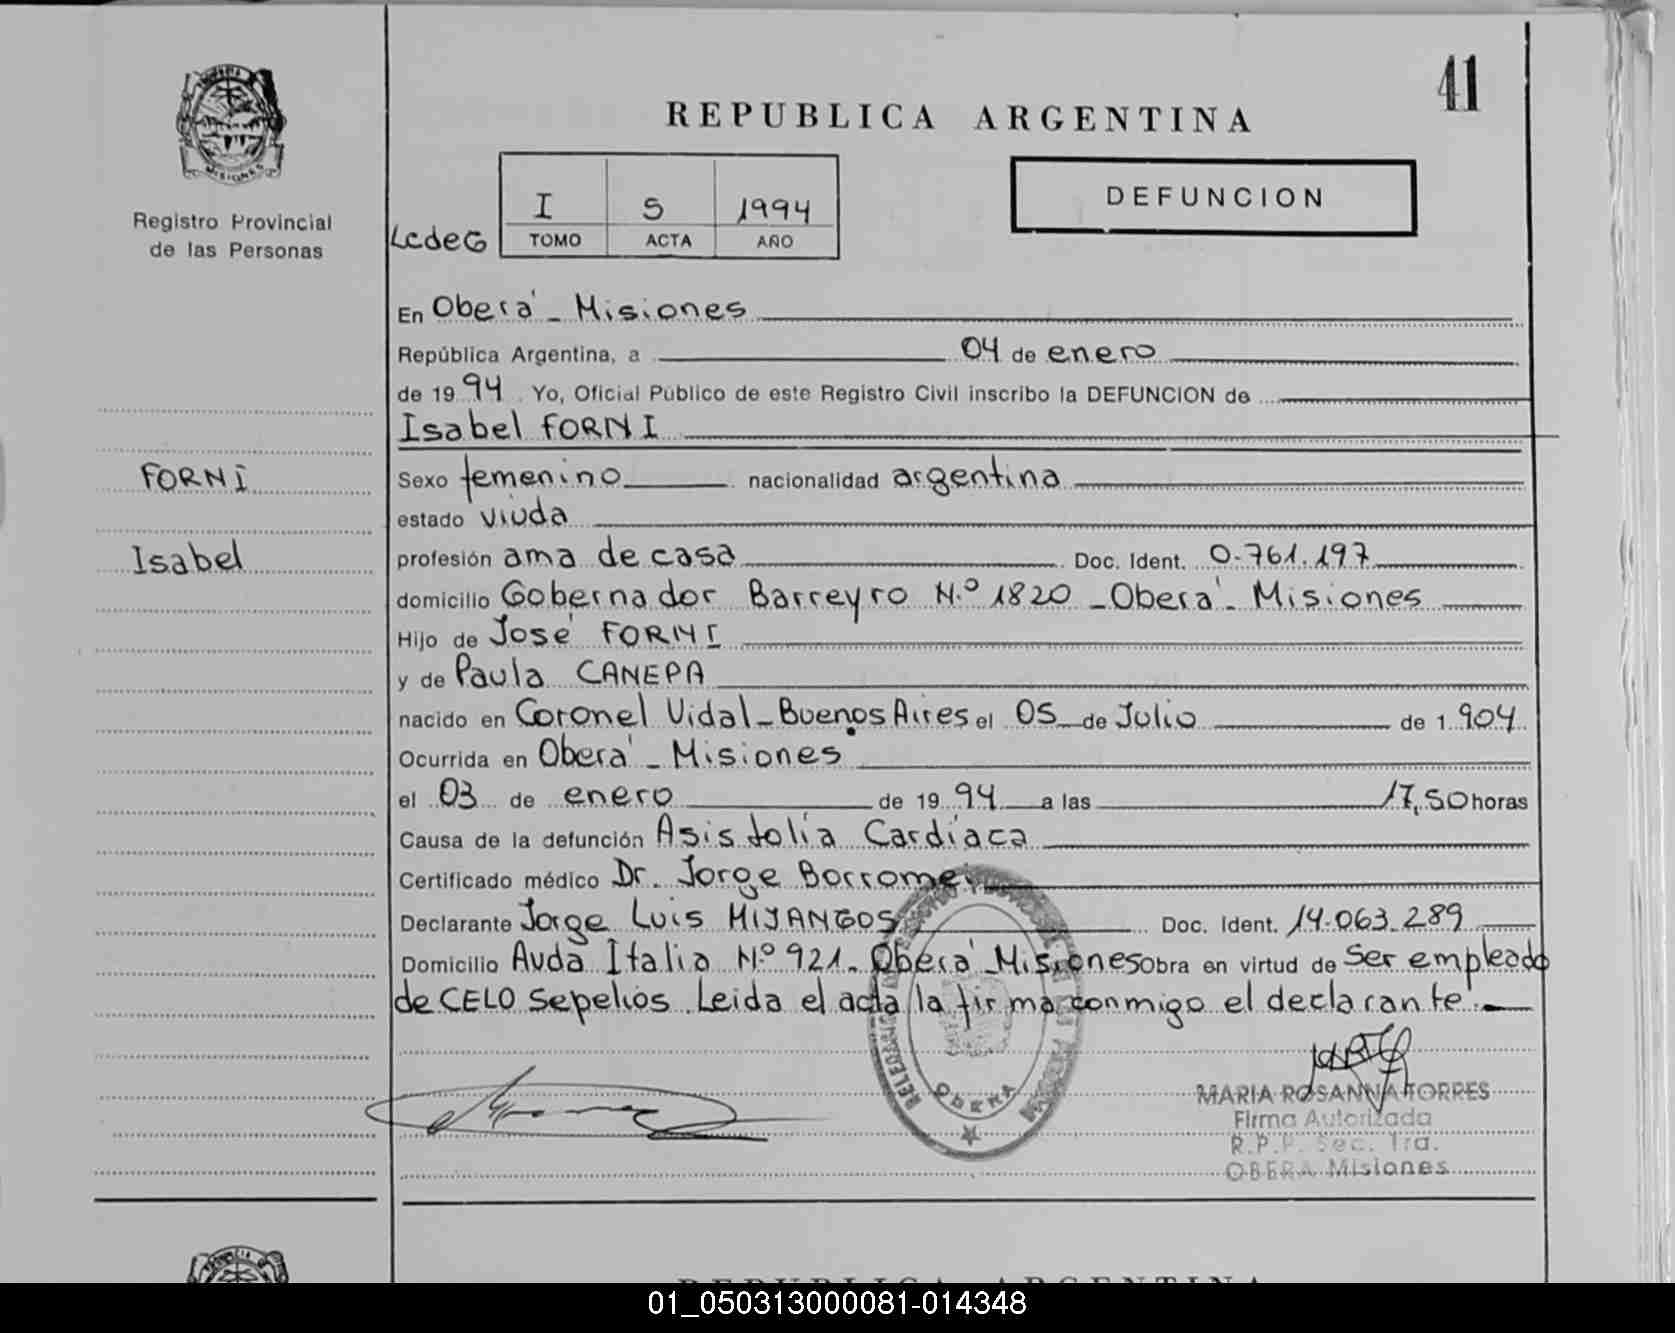 41
REPUBLICA ARGENTINA
DEFUNCION
MISIONES
Registro Provincial
de las Personas
LcdeG
I 5 1994
TOMO ACTA AÑO
En Oberá - Misiones
República Argentina, a 04 de enero
de 19 94 Yo, Oficial Público de este Registro Civil inscribo la DEFUNCION de
Isabel FORNI
FORNI
Isabel
Sexo femenino nacionalidad argentina
estado viuda
profesión ama de casa Doc. Ident. 0.761.197
domicilio Gobernador Barreyro N.º 1820 - Oberá - Misiones
Hijo de José FORNI
y de Paula CANEPA
nacido en Coronel Vidal - Buenos Aires el 05 de Julio de 1.904
Ocurrida en Oberá - Misiones
el 03 de enero de 19 94 a las 17,50 horas
Causa de la defunción Asistolía Cardíaca
Certificado médico Dr. Jorge Borromei
Declarante Jorge Luis MIJANGOS Doc. Ident. 14.063.289
Domicilio Avda Italia N.º 921 - Oberá - Misiones Obra en virtud de Ser empleado
de CELO Sepelios. Leida el acta la firma conmigo el declarante.
OBERA
MARIA ROSANNA TORRES
Firma Autorizada
R.P.P. Sec. 1ra.
OBERA Misiones
REPUBLICA ARGENTINA
01_050313000081-014348